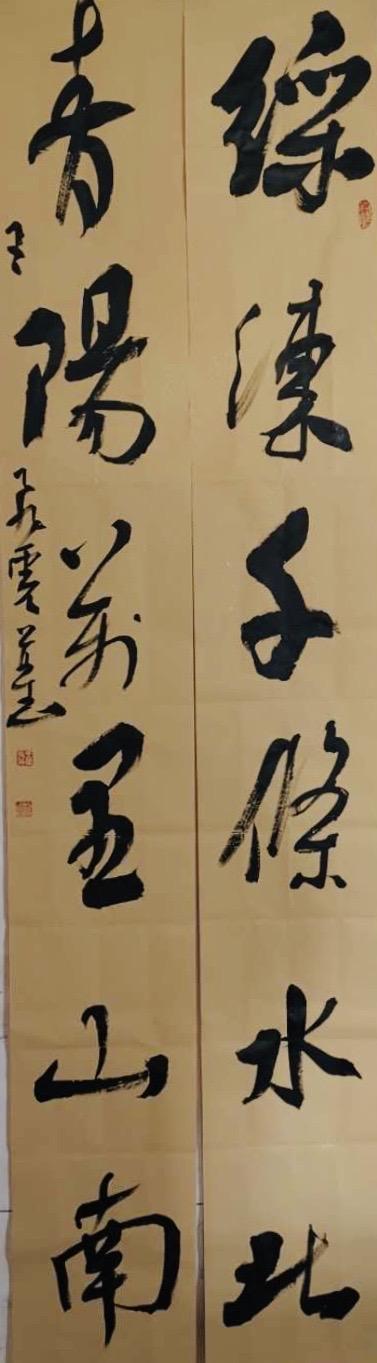 綵練千條水北
青陽萬里山南